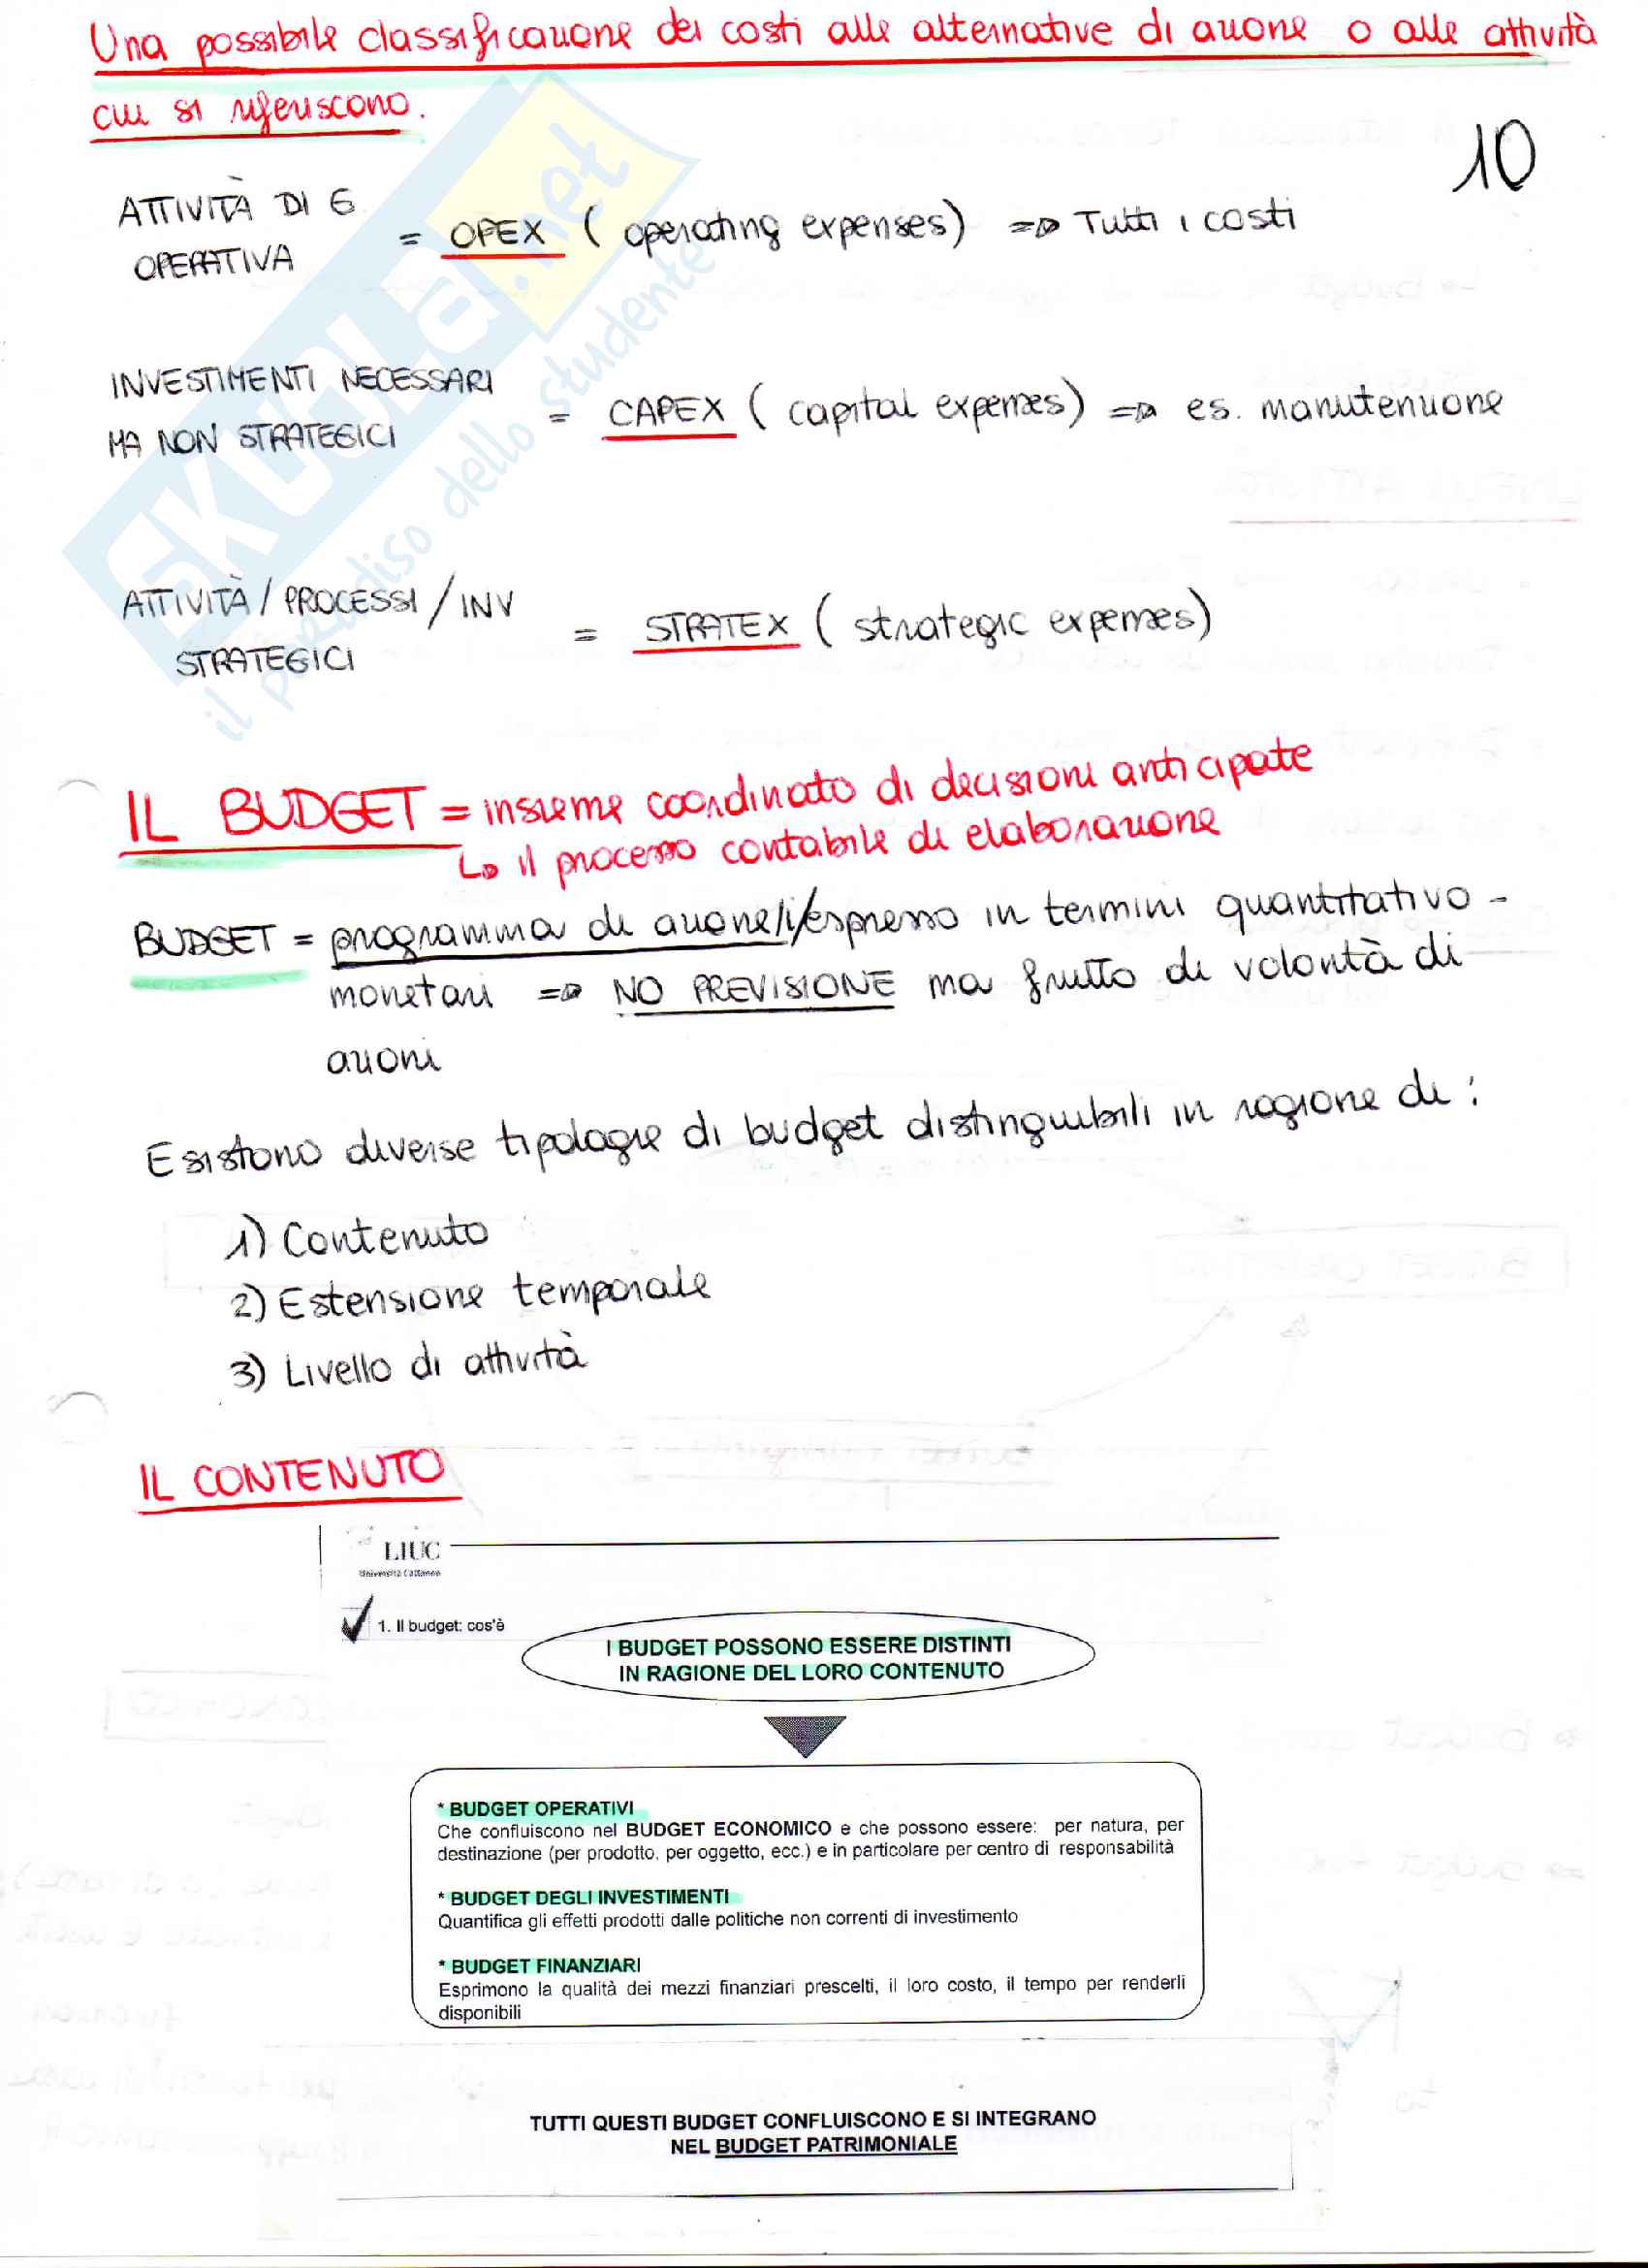 Una possibile classificazione dei costi alle alternative di azione o alle attività
cui si riferiscono.
10
ATTIVITÀ DI G
OPERATIVA
= OPEX ( operating expenses) => Tutti i costi
INVESTIMENTI NECESSARI
MA NON STRATEGICI
= CAPEX ( capital expenses) => es. manutenzione
ATTIVITÀ / PROCESSI / INV
STRATEGICI
= STRATEX ( strategic expenses)
SKUOLA.net
il paradiso dello studente
IL BUDGET = insieme coordinato di decisioni anticipate
↳ il processo contabile di elaborazione
BUDGET = programma di azione/i/espresso in termini quantitativo -
monetari => NO PREVISIONE ma frutto di volontà di
azioni
Esistono diverse tipologie di budget distinguibili in ragione di :
1) Contenuto
2) Estensione temporale
3) Livello di attività
IL CONTENUTO
LIUC
Università Cattaneo
1. Il budget: cos'è
I BUDGET POSSONO ESSERE DISTINTI
IN RAGIONE DEL LORO CONTENUTO
* BUDGET OPERATIVI
Che confluiscono nel BUDGET ECONOMICO e che possono essere: per natura, per
destinazione (per prodotto, per oggetto, ecc.) e in particolare per centro di responsabilità
* BUDGET DEGLI INVESTIMENTI
Quantifica gli effetti prodotti dalle politiche non correnti di investimento
* BUDGET FINANZIARI
Esprimono la qualità dei mezzi finanziari prescelti, il loro costo, il tempo per renderli
disponibili
TUTTI QUESTI BUDGET CONFLUISCONO E SI INTEGRANO
NEL BUDGET PATRIMONIALE